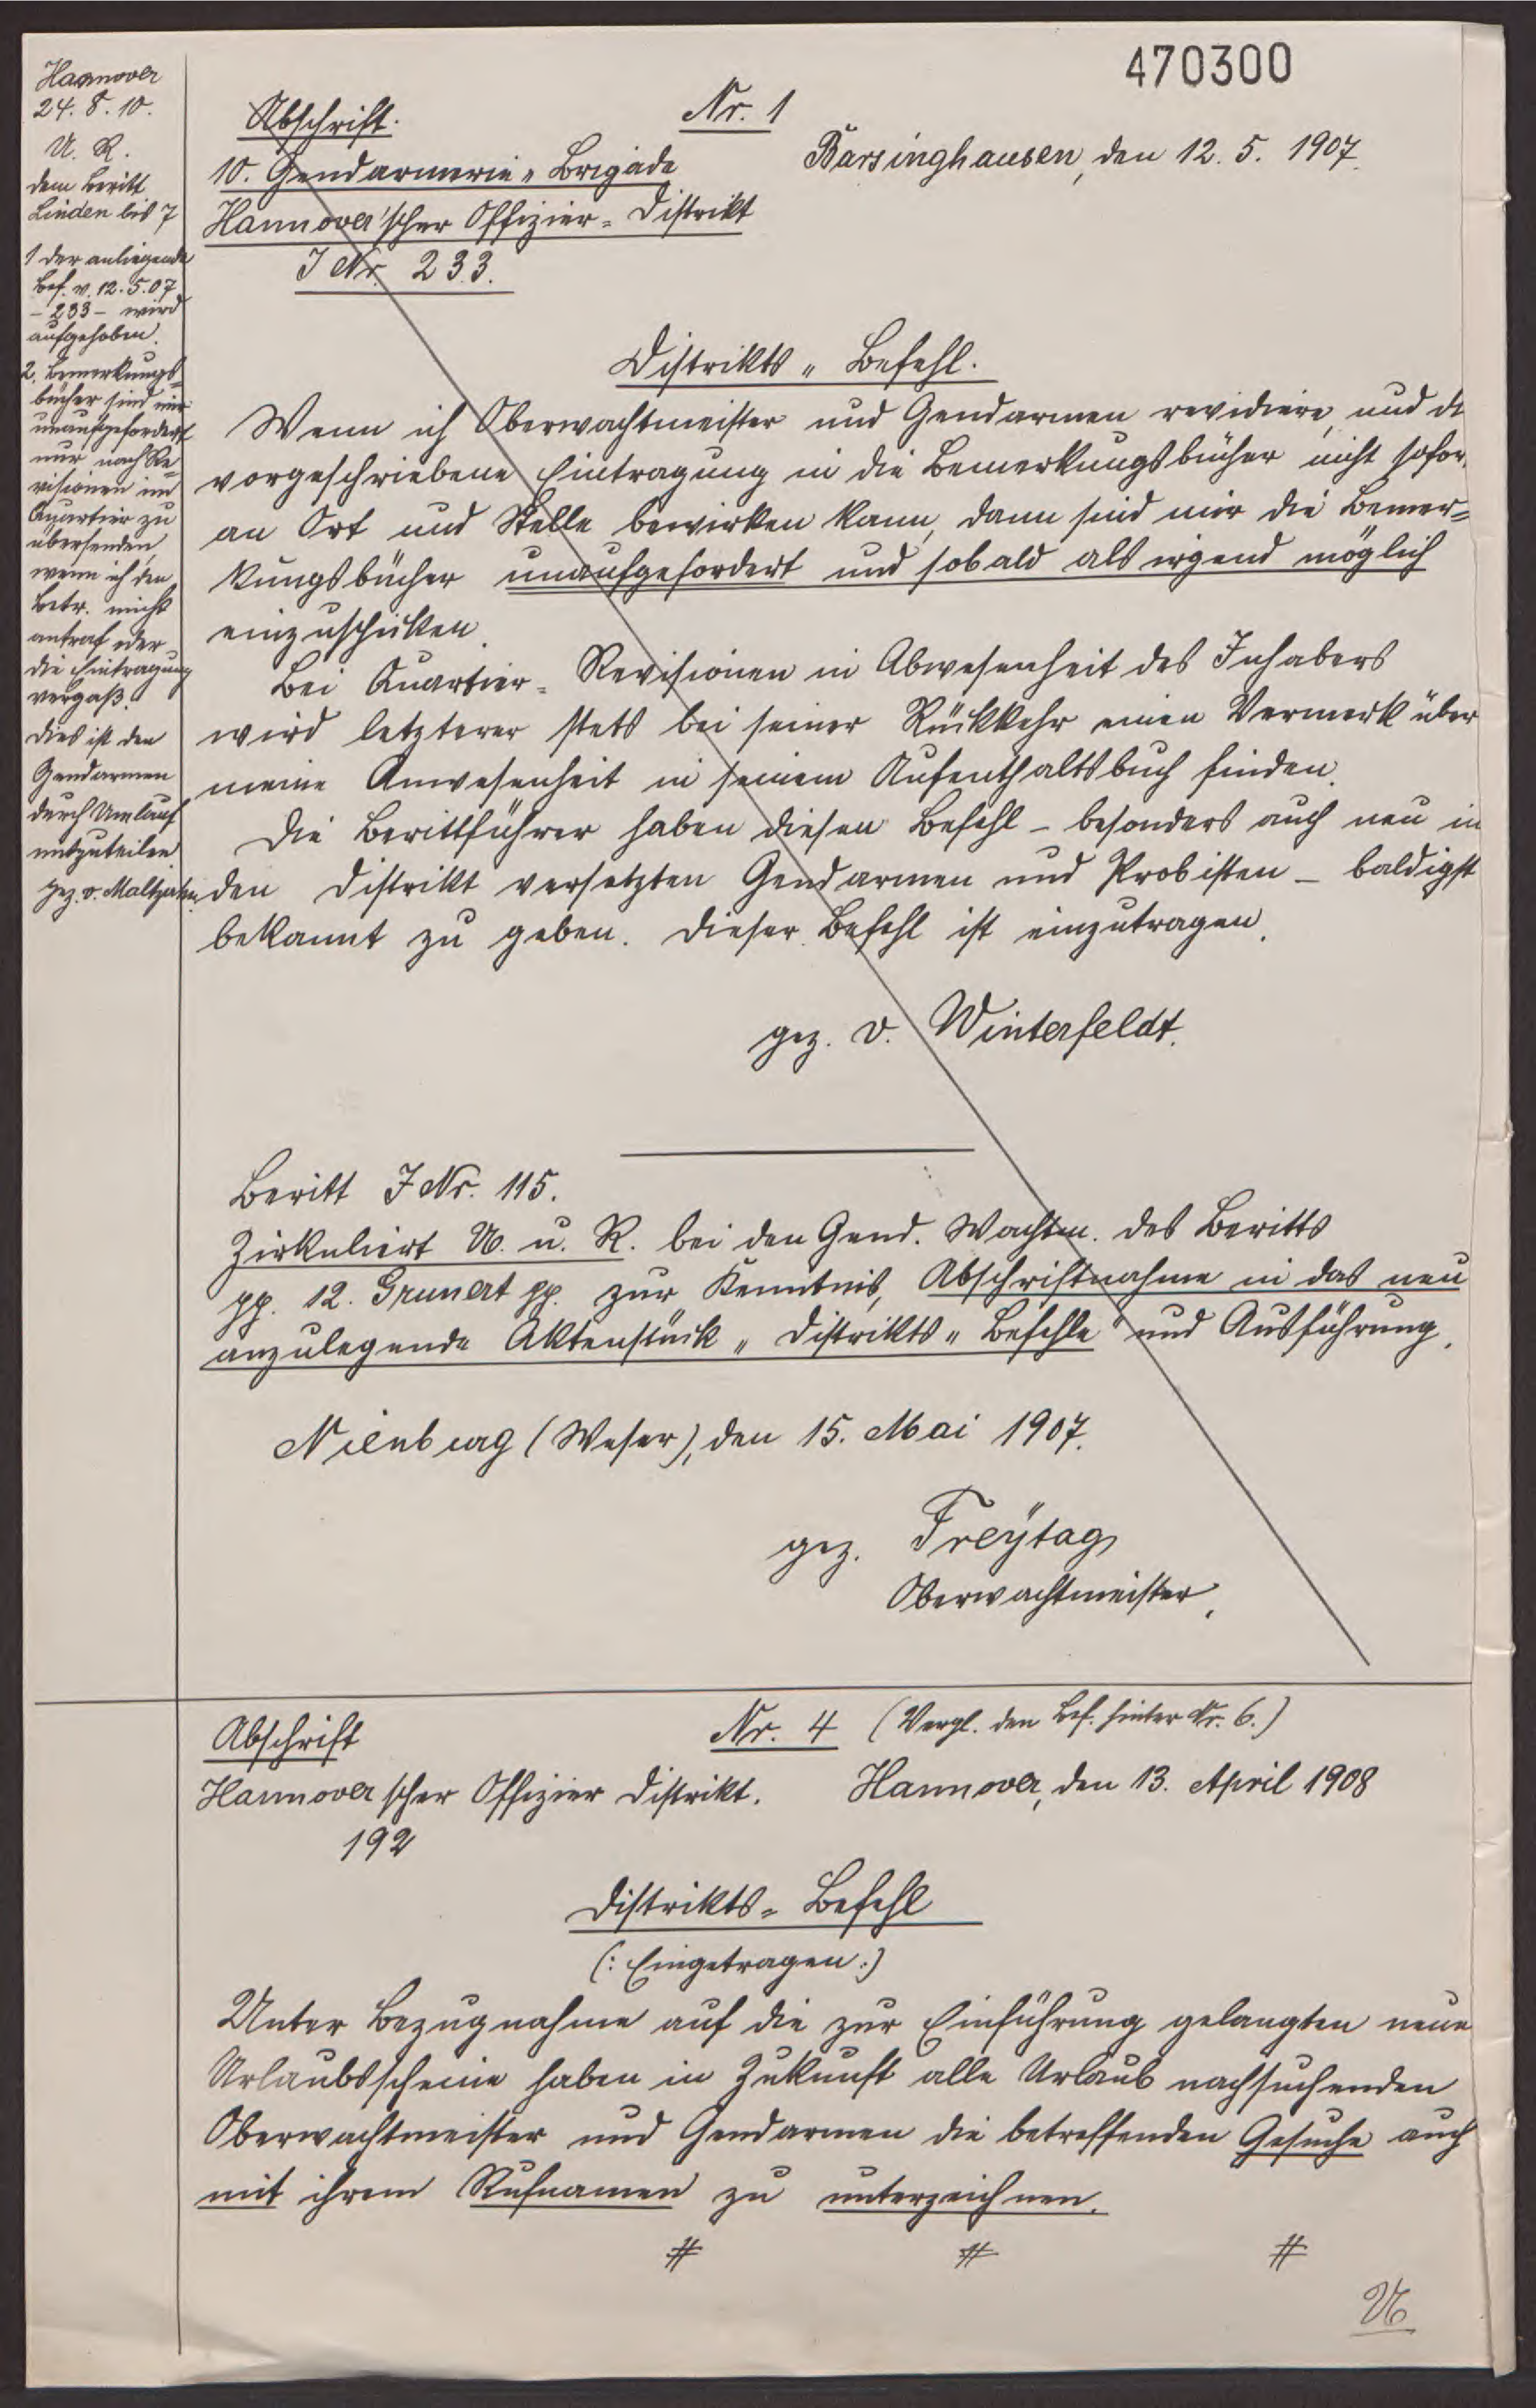 470300
Hannover
24. 8. 10.
U. R.
dem Beritt
Linden bis 7
1 der anliegende
Bef. v. 12.5.07
- 233 - wird
aufgehoben.
2. Bemerkungs-
bücher sind mir
unaufgefordert
nur nach Re-
visionen im
Quartier zu
übersenden,
wenn ich den
Betr. nicht
antraf oder
die Eintragung
vergaß.
Dies ist den
Gendarmen
durch Umlauf
mitzuteilen
gez. v. Maltzahn.
Abschrift.
Nr. 1
10. Gendarmerie-Brigade
Barsinghausen, den 12. 5. 1907.
Hannover'scher Offizier-Distrikt
J Nr. 233.
Distrikts-Befehl.
Wenn ich Oberwachtmeister und Gendarmen revidiere, und di
vorgeschriebene Eintragung in die Bemerkungsbücher nicht sofor
an Ort und Stelle bewirken kann, dann sind mir die Bemer-
kungsbücher unaufgefordert und sobald als irgend möglich
einzuschicken.
Bei Quartier-Revisionen in Abwesenheit des Inhabers
wird letzterer stets bei seiner Rückkehr einen Vermerk über
meine Anwesenheit in seinem Aufenthaltsbuch finden.
Die Berittführer haben diesen Befehl - besonders auch neu in
den Distrikt versetzten Gendarmen und Probisten - baldigst
bekannt zu geben. Dieser Befehl ist einzutragen.
gez. v. Winterfeldt.
Beritt J Nr. 115.
Zirkuliert U. u. R. bei den Gend. Wachtm. des Beritts
pp. 12. Grunert pp. zur Kenntnis, Abschriftnahme in das neu
anzulegende Aktenstück "Distrikts-Befehle" und Ausführung.
Nienburg (Weser), den 15. Mai 1907.
gez. Freÿtag
Oberwachtmeister.
Abschrift
Nr. 4 (Vergl. den Bef. hinter Nr. 6.)
Hannoverscher Offizier Distrikt.
Hannover, den 13. April 1908
192
Distrikts-Befehl
(: Eingetragen :)
Unter Bezugnahme auf die zur Einführung gelangten neue
Urlaubsscheine haben in Zukunft alle Urlaub nachsuchenden
Oberwachtmeister und Gendarmen die betreffenden Gesuche auch
mit ihrem Rufnamen zu unterzeichnen.
# # #
U